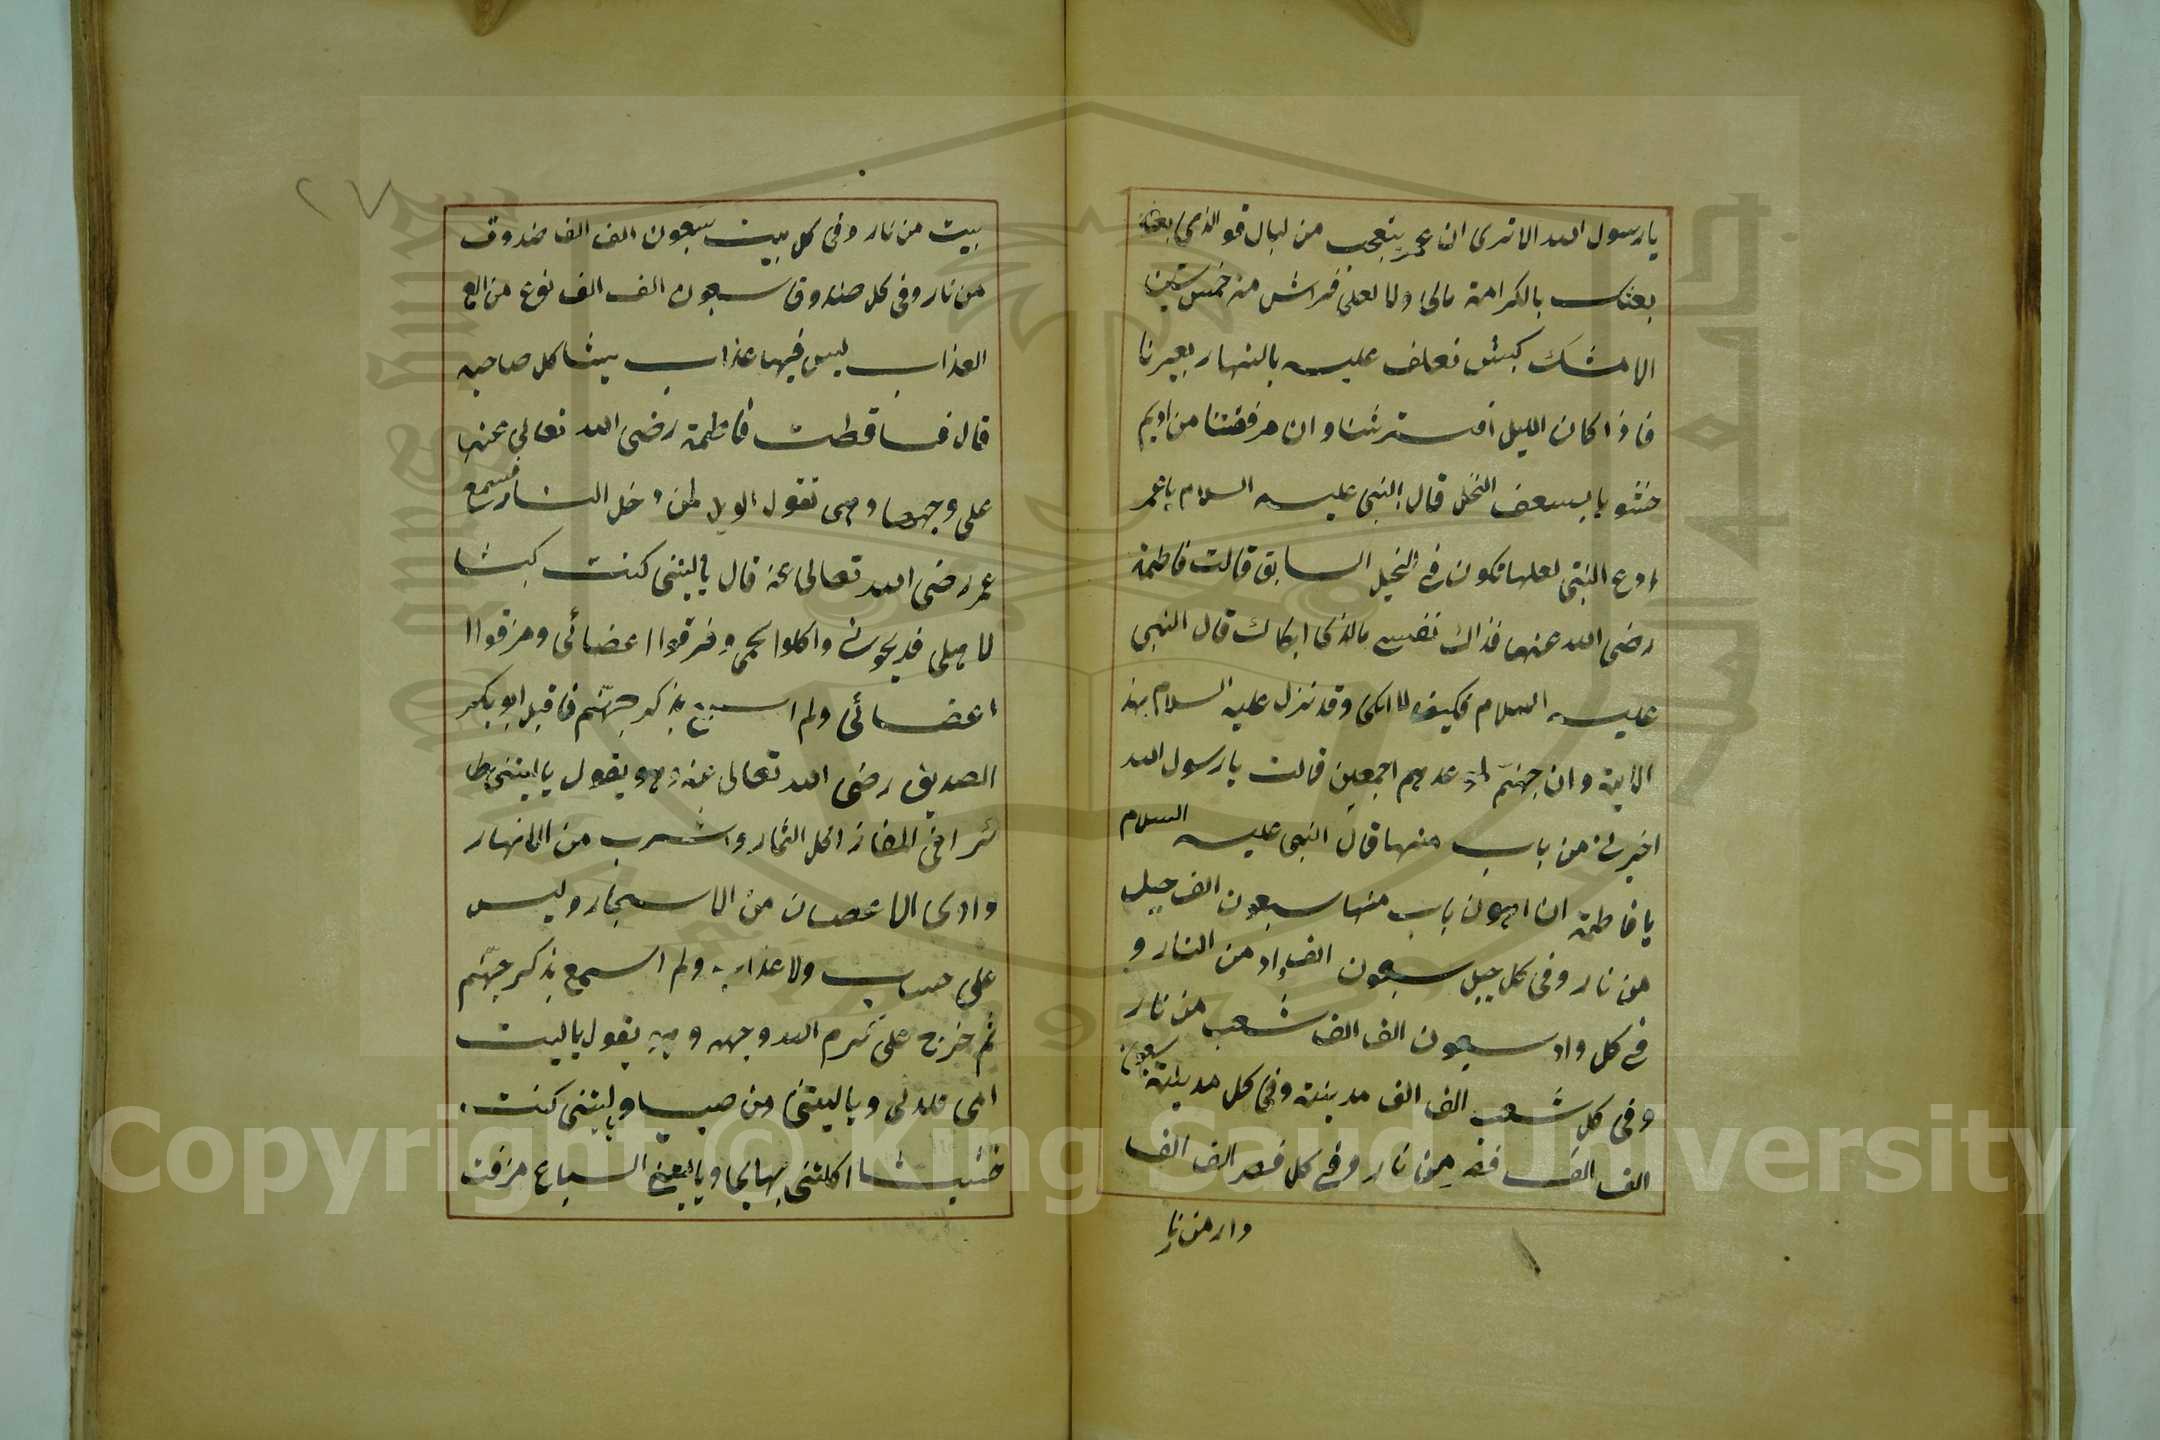 يارسول الله الا ترى ان عمر يتعجب من لبال فو الذى بعثك
بعثك بالكرامة مالى ولا لعلى فراش من خمس سنين
الا مشك كبش نعلف عليه بالنهار بعيرنا
فاذا كان الليل افترشنا وان مرفقتنا من اديم
حشو با بسعف النخل قال النبى عليه السلام يا عمر
ادع البنتى لعلها تكون فى الخيل السابق قالت فاطمة
رضى الله عنها فداك نفسى مالذى ابكاك قال النبى
عليه السلام فكيف لا ابكى وقد نزل عليه السلام بهذ
الاية وان جهنم لموعدهم اجمعين قالت يا رسول الله
اخبرنى من باب منها قال النبى عليه السلام
يا فاطمة ان اهون باب منها سبعون الف جبل
من نار وفى كل جبل سبعون الف واد من النار و
فى كل واد سبعون الف الف شعب من نار
وفى كل شعب الف الف مدينة وفى كل مدينة سبعون
الف الف قصر من نار وفى كل قصر الف الف
دار من نار
٢٧
بيت من نار وفى كل بيت سبعون الف الف صندوق
من نار وفى كل صندوق سبعون الف الف نوع من الع
العذاب ليس فيها عذاب يشاكل صاحبه
قال فساقطت فاطمة رضى الله تعالى عنها
على وجهها وهى تقول الويل لمن دخل النار فسمع
عمر رضى الله تعالى عنه قال يا ليتنى كنت كبشا
لاهلى فديحونى واكلوا لحمى وفرقوا اعضائى ومزقوا ا
اعضائى ولم اسمع بذكر جهنم فاقبل ابو بكر
الصديق رضى الله تعالى عنه وهو يقول يا ليتنى طا
ئرا فى المفاز اكل الثمار واشرب من الانهار
واوى الاغصان من الاسجار وليس
على حساب ولا عذاب ولم اسمع بذكر جهنم
ثم خرج على كرم الله وجهه وهو يقول يا ليت
امى تلدنى ويا ليتنى من صبيا وليتنى كنت
حشيشا اكلتنى بهايما ويا ليتنى السباع مزقت
Copyright © King Saud University